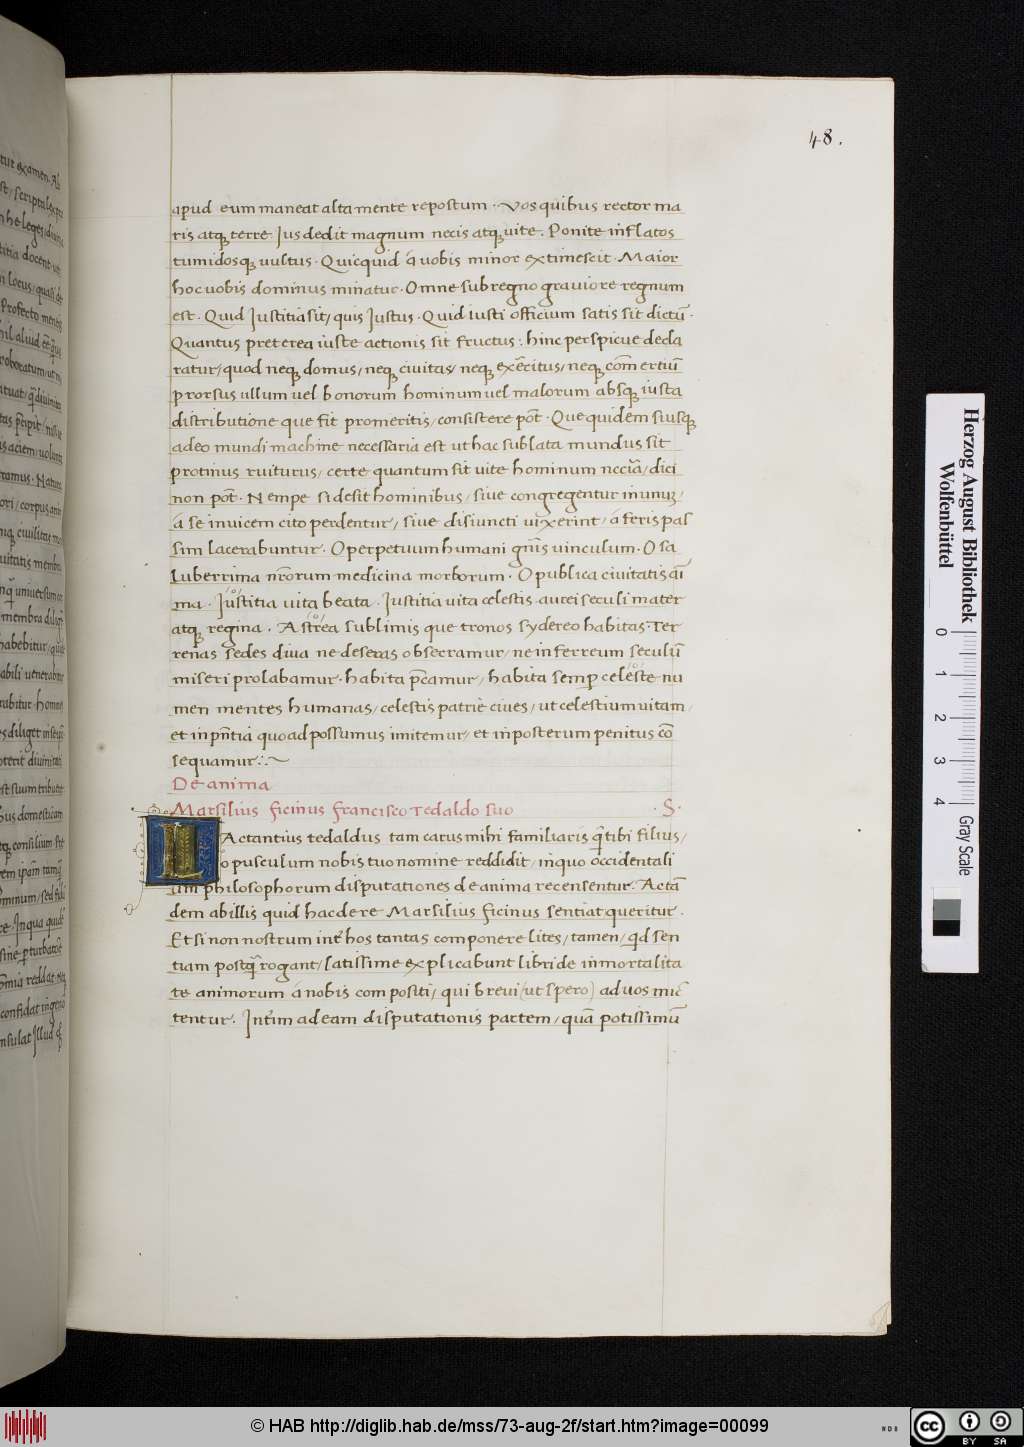 48.
apud eum maneat alta mente repostum. Vos quibus rector ma
ris atq; terre Jus dedit magnum necis atq; uite. Ponite inflatos
tumidosq; uultus. Quicquid á uobis minor extimescit. Maior
hoc uobis dominus minatur. Omne sub regno grauiore regnum
est. Quid Justitia sit, quis Justus. Quid iusti officium satis sit dictū.
Quantus preterea iuste actionis sit fructus: hinc perspicue decla
ratur, quod neq; domus, neq; ciuitas, neq; exercitus, neq; cōmertiū
prorsus ullum uel bonorum hominum uel malorum absq; iusta
distributione que fit pro meritis, consistere pōt. Que quidem siusq;
adeo mundi machine necessaria est ut hac sublata mundus sit
protinus ruiturus, certe quantum sit uite hominum nccīa, dici
non pōt. Nempe si desit hominibus, siue congregentur in unuz,
á se inuicem cito perdentur, siue disiuncti uixerint, á feris pas
sim lacerabuntur. O perpetuum humani gnīs uinculum. O sa
luberrima nrōrum medicina morborum. O publica ciuitatis aī
ma. Justitia uita beata. Justitia uita celestis. aurei seculi mater
atq; regina. Astrea sublimis que tronos sydereo habitas. Ter
renas sedes diua ne deseras obsecramur, ne in ferreum seculū
miseri prolabamur. habita p̄camur, habita semp celeste nu
men mentes humanas, celestis patrie ciues, ut celestium uitam,
et in pn̄tia quoad possumus imitemur, et in posterum penitus cō
sequamur:~
De anima
Marsilius ficinus francisco Tedaldo suo .S.
LActantius tedaldus tam carus mihi familiaris q̄ tibi filius,
opusculum nobis tuo nomine reddidit, in quo occidentali
um philosophorum disputationes de anima recensentur. Actā
dem ab illis quid hac de re Marsilius ficinus sentiat queritur.
Et si non nostrum int̄ hos tantas componere lites, tamen, qd sen
tiam postq̄ rogant, latissime explicabunt libri de inmortalita
te animorum á nobis compositi, qui breui (ut spero) ad uos mic̄
tentur. Int̄im ad eam disputationis partem, quā potissimū
Herzog August Bibliothek
Wolfenbüttel
0 1 2 3 4
Gray Scale
© HAB http://diglib.hab.de/mss/73-aug-2f/start.htm?image=00099
WDB
cc BY SA